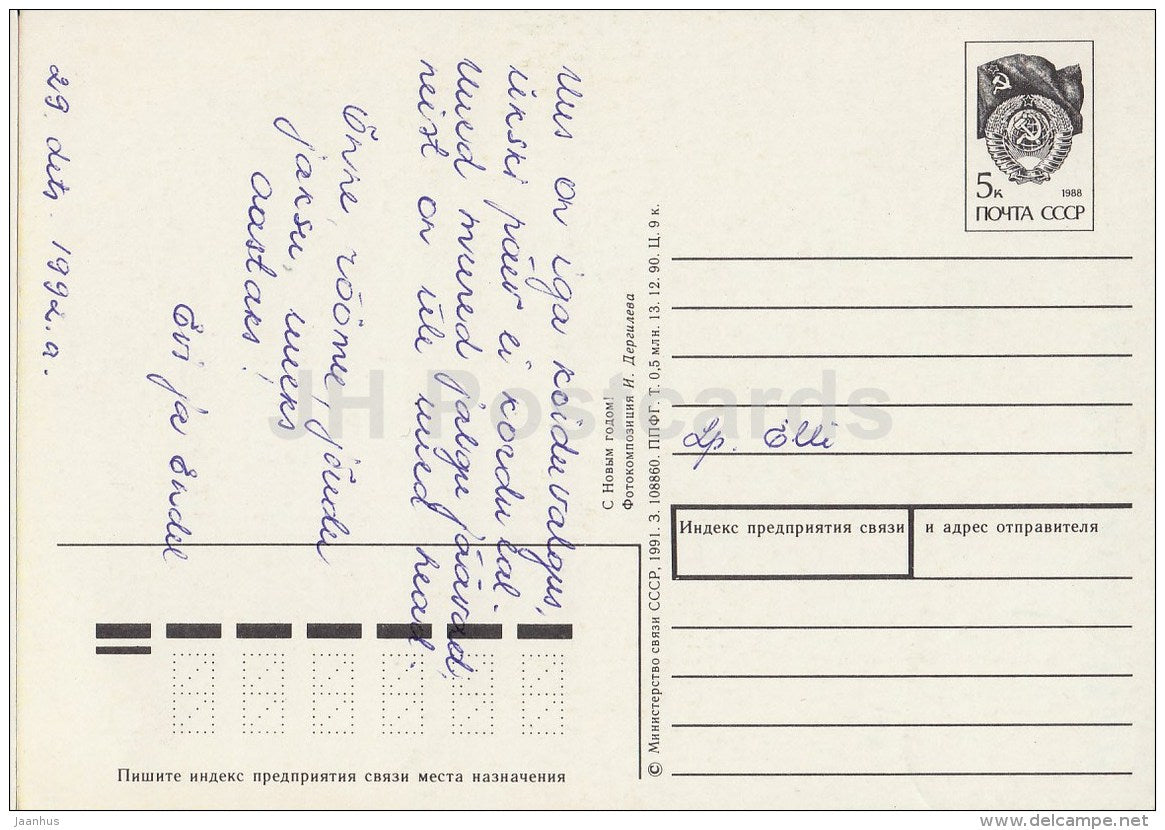 Uus on iga koiduvalgus,
ükski päev ei kordu eal.
Uued mured jälgu jäävad,
neist on üle uued head.
Õnne, rõõmu, jõudu
jaksu, uueks
aastaks!
Evi ja Endel
29. dets. 1992.a.
С Новым годом!
Фотокомпозиция И. Дергилева
© Министерство связи СССР, 1991. З. 108860. ППФГ. Т. 0,5 млн. 13. 12. 90. Ц. 9 к.
5к 1988
ПОЧТА СССР
Lp. Elli
Индекс предприятия связи и адрес отправителя
Пишите индекс предприятия связи места назначения
JH Postcards
Jaanhus
www.delcampe.net